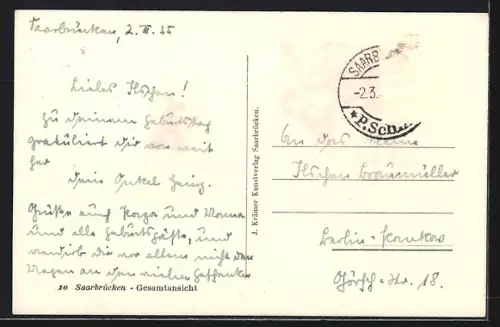 Saarbrücken, 2. III. 35
Liebes Ilschen!
Zu deinem Geburtstag
gratuliert dir von weit
her
dein Onkel Heinz.
Grüße auch Papa und Mama
und alle Geburtsgäste, und
verdirb dir vor allem nicht den
Magen an den vielen
10 Saarbrücken - Gesamtansicht
J. Krämer Kunstverlag Saarbrücken.
SAARB
-2.3.
* P.Sch.
An das kleine
Ilschen
Berlin-Pankow
Görsch-Str. 18.